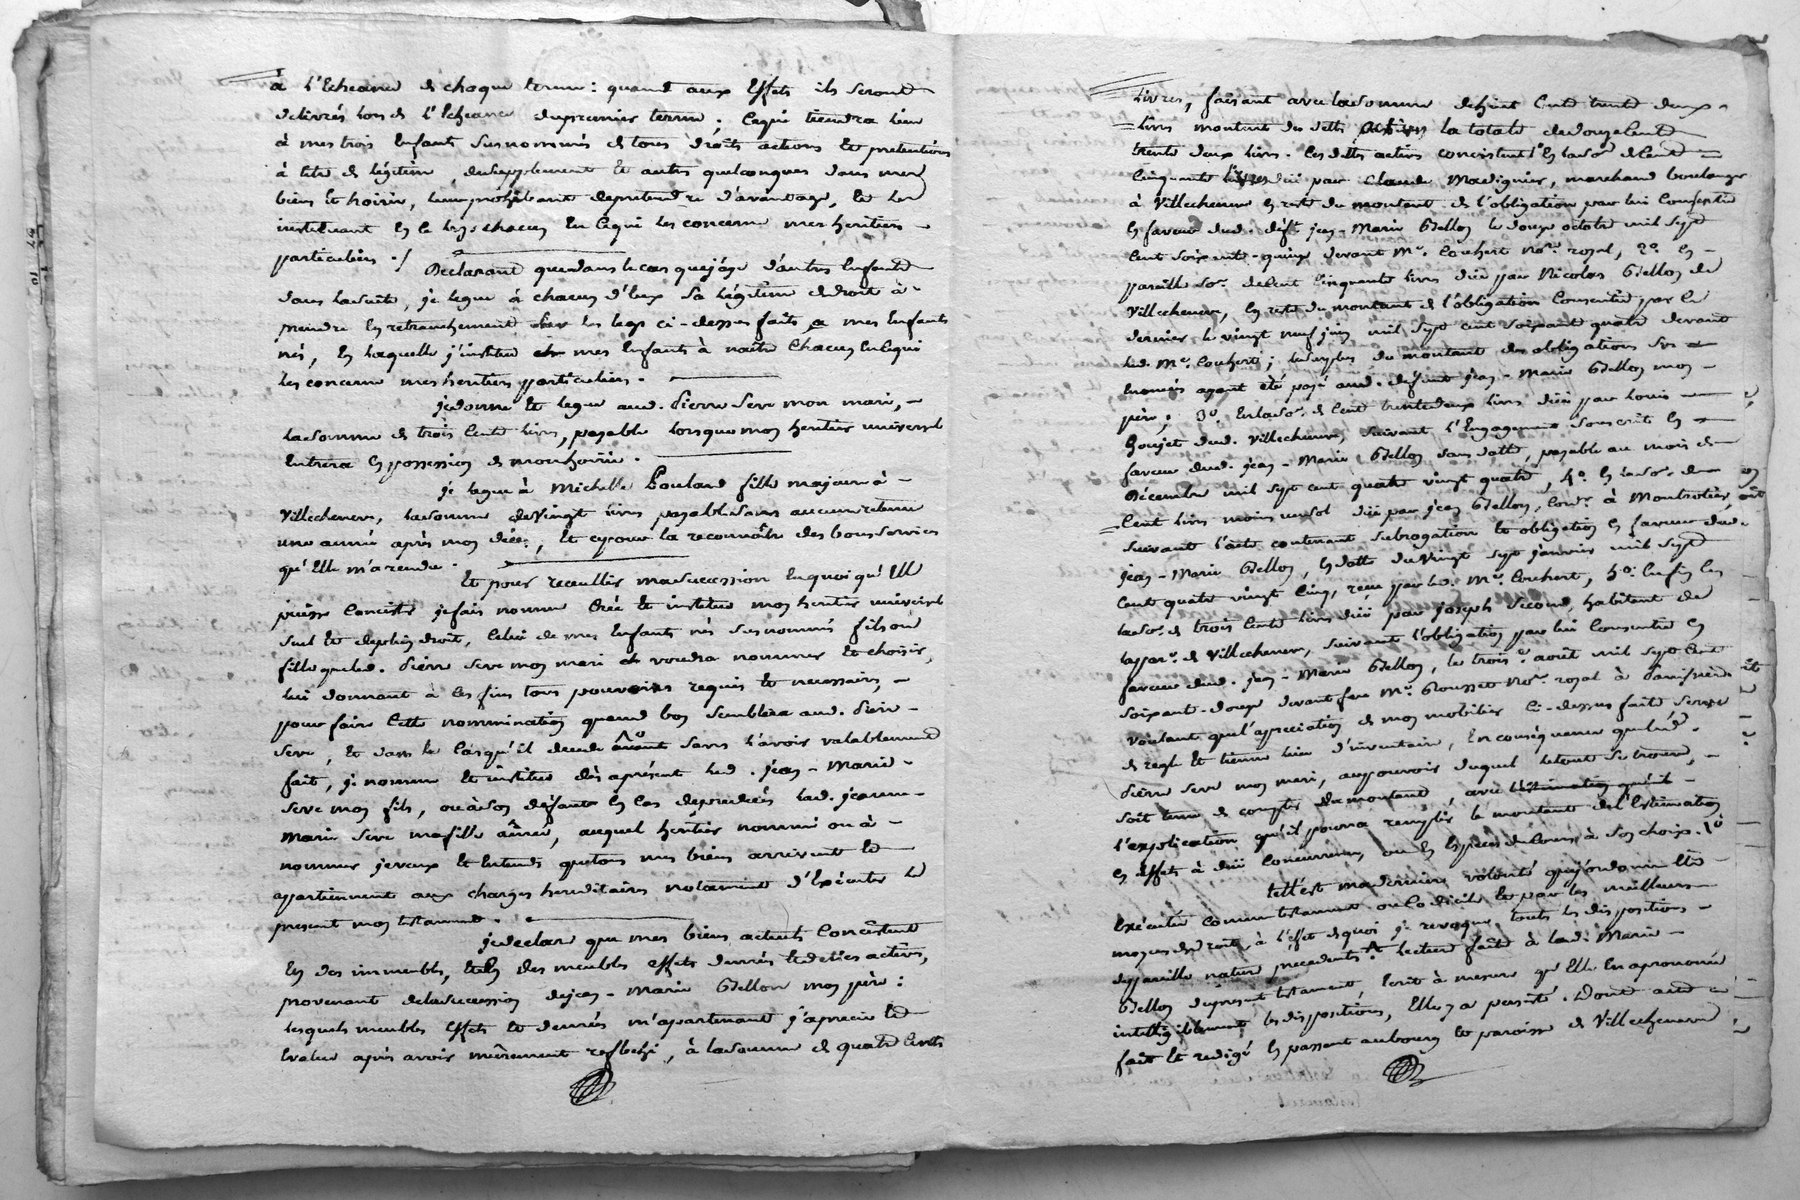 à l'Echeance de chaque terme : quand aux Effets ils seront
delivrés lors de l'Echeance dupremier terme. Cequi tiendra lieu
à mes trois Enfant susnommés de tous droits actions et pretentions
à titre de légitime, desupplement et autres quelconques dans mes
biens et hoirie, leurprohibant depretendre d'avantage, et les
instituant en le legs chacun en cequi les concerne mes heritiers
particuliers. /
Declarant quedans lecas quejaye d'autres Enfants
dans lasuite, je legue à chacun d'Eux sa légitime dedroit à
prendre en retranchement sur les legs ci-dessus faits a mes Enfants
nés, en laquelle j'institue mes Enfants à naitre chacun encequi
les concerne mes heritiers particuliers.
jedonne et legue aud. Pierre Seve mon mari,
lasomme de trois Cent livres, payable lorsque mon heritier universel
Entrera en possession de monhoirie.
je legue à Michelle Poulard fille majeure à
Villechenève, lasomme devingt livres payable sans aucune retenue
une année après mon décès, et cepour la reconnoître des bons services
qu'Elle m'a rendu.
Et pour recueillir masuccession En quoi qu'Elle
puisse Concister jefais nomme Crée et institue mon heritier universel
seul et deplein droit, Celui de mes Enfants nés susnommés fils ou
fille queled. Pierre Seve mon mari voudra nommer et choisir,
lui donnant à ces fins tous pouvoirs requis et necessaire,
pour faire Cette nommination quand bon semblera aud. Pierre
Seve, et dans le Cas qu'il decede avant sans l'avoir valablement
fait, je nomme et institue dès aprésent led. jean-Marie
Seve mon fils, ou à son défaut en cas deprédécès lad. jeanne
Marie Seve mafille aînée, auquel heritier nommé ou à
nommer jeveux et Entends quetous mes biens arrivent et
appartiennent aux charges hereditaires notament d'Exécuter le
present mon testament.
jedeclare que mes biens actuels Concistent
En des immeubles, et en des meubles effets denrées et dettes actives,
provenant delasuccession dejean-Marie Bellon mon père :
lesquels meubles effets et denrées m'apartenant j'aprecie et
évalue après avoir mûrement reflechi, à lasomme de quatre Cents
livres, faisant avec lasomme dehuit Cent trente deux
livres montant des dettes actives la totale dedouze Cent
trente deux livres. Ces dettes actives concistent 1° En la so.e deCent
Cinquante livres due par Claude Mardignier, marchand boulanger
à Villechenève En reste du montant de l'obligation par lui Consentie
En faveur dud. déft jean-Marie Bellon le douze octobre mil sept
Cent soixante-quinze devant Me Couhert Nore royal, 2° En
pareille so.e deCent Cinquante livres due par Nicolas Bellon de
Villechenève, En reste dumontant de l'obligation Consentie par le
dernier le vingt neuf juin mil sept cent soixante quatre devant
led. Me Couhert ; lesurplus du montant des obligations sus
Enoncés ayant été payé aud. défunt jean-Marie Bellon mon
père ; 3° En la so.e de Cent trente deux livres due par Louis
Goujet dud. Villechenève, suivant l'Engagement souscrit En
faveur dud. jean-Marie Bellon sans datte, payable au mois de
Décembre mil sept cent quatre vingt quatre, 4° En la so.e de
Cent livres moins un sol due par jean Bellon, à Montrotier,
suivant l'acte contenant subrogation et obligation En faveur dud.
jean-Marie Bellon, En datte du vingt sept janvier mil sept
Cent quatre vingt Cinq, reçu par led. Me Couhert, 5° Enfin En
la so.e de trois Cents livres due par joseph Second, habitant de
lapar.e de Villechenève, suivant l'obligation par lui Consentie En
faveur dud. jean-Marie Bellon, le trois août mil sept Cent
soixant-douze devant feu Me Rousset Nore royal à
voulant quel'apreciation de mon mobilier ci-dessus faite serve
de regle et tienne lieu d'inventaire, En conséquence queled.
Pierre Seve mon mari, aupouvoir duquel letout setrouve,
soit tenu de compter du montant, avec
l'explication qu'il pourra remplir le montant de l'Estimation
En effets à due Concurrence, ou En Espèces de Cours à son choix.
telle est maderniere volonté quej'ordonne être
Exécutée comme testament ou Codicile et par les meilleurs
moyens dedroit, à l'effet de quoi je revoque toutes les dispositions
depareille nature precedentes. lecture faite à lad. Marie
Bellon dupresent testament écrit à mesure qu'Elle En a prononcé
intelligiblement les dispositions, Elle y a persisté. Dont acte
fait et redigé En passant au bourg et paroisse de Villechenève